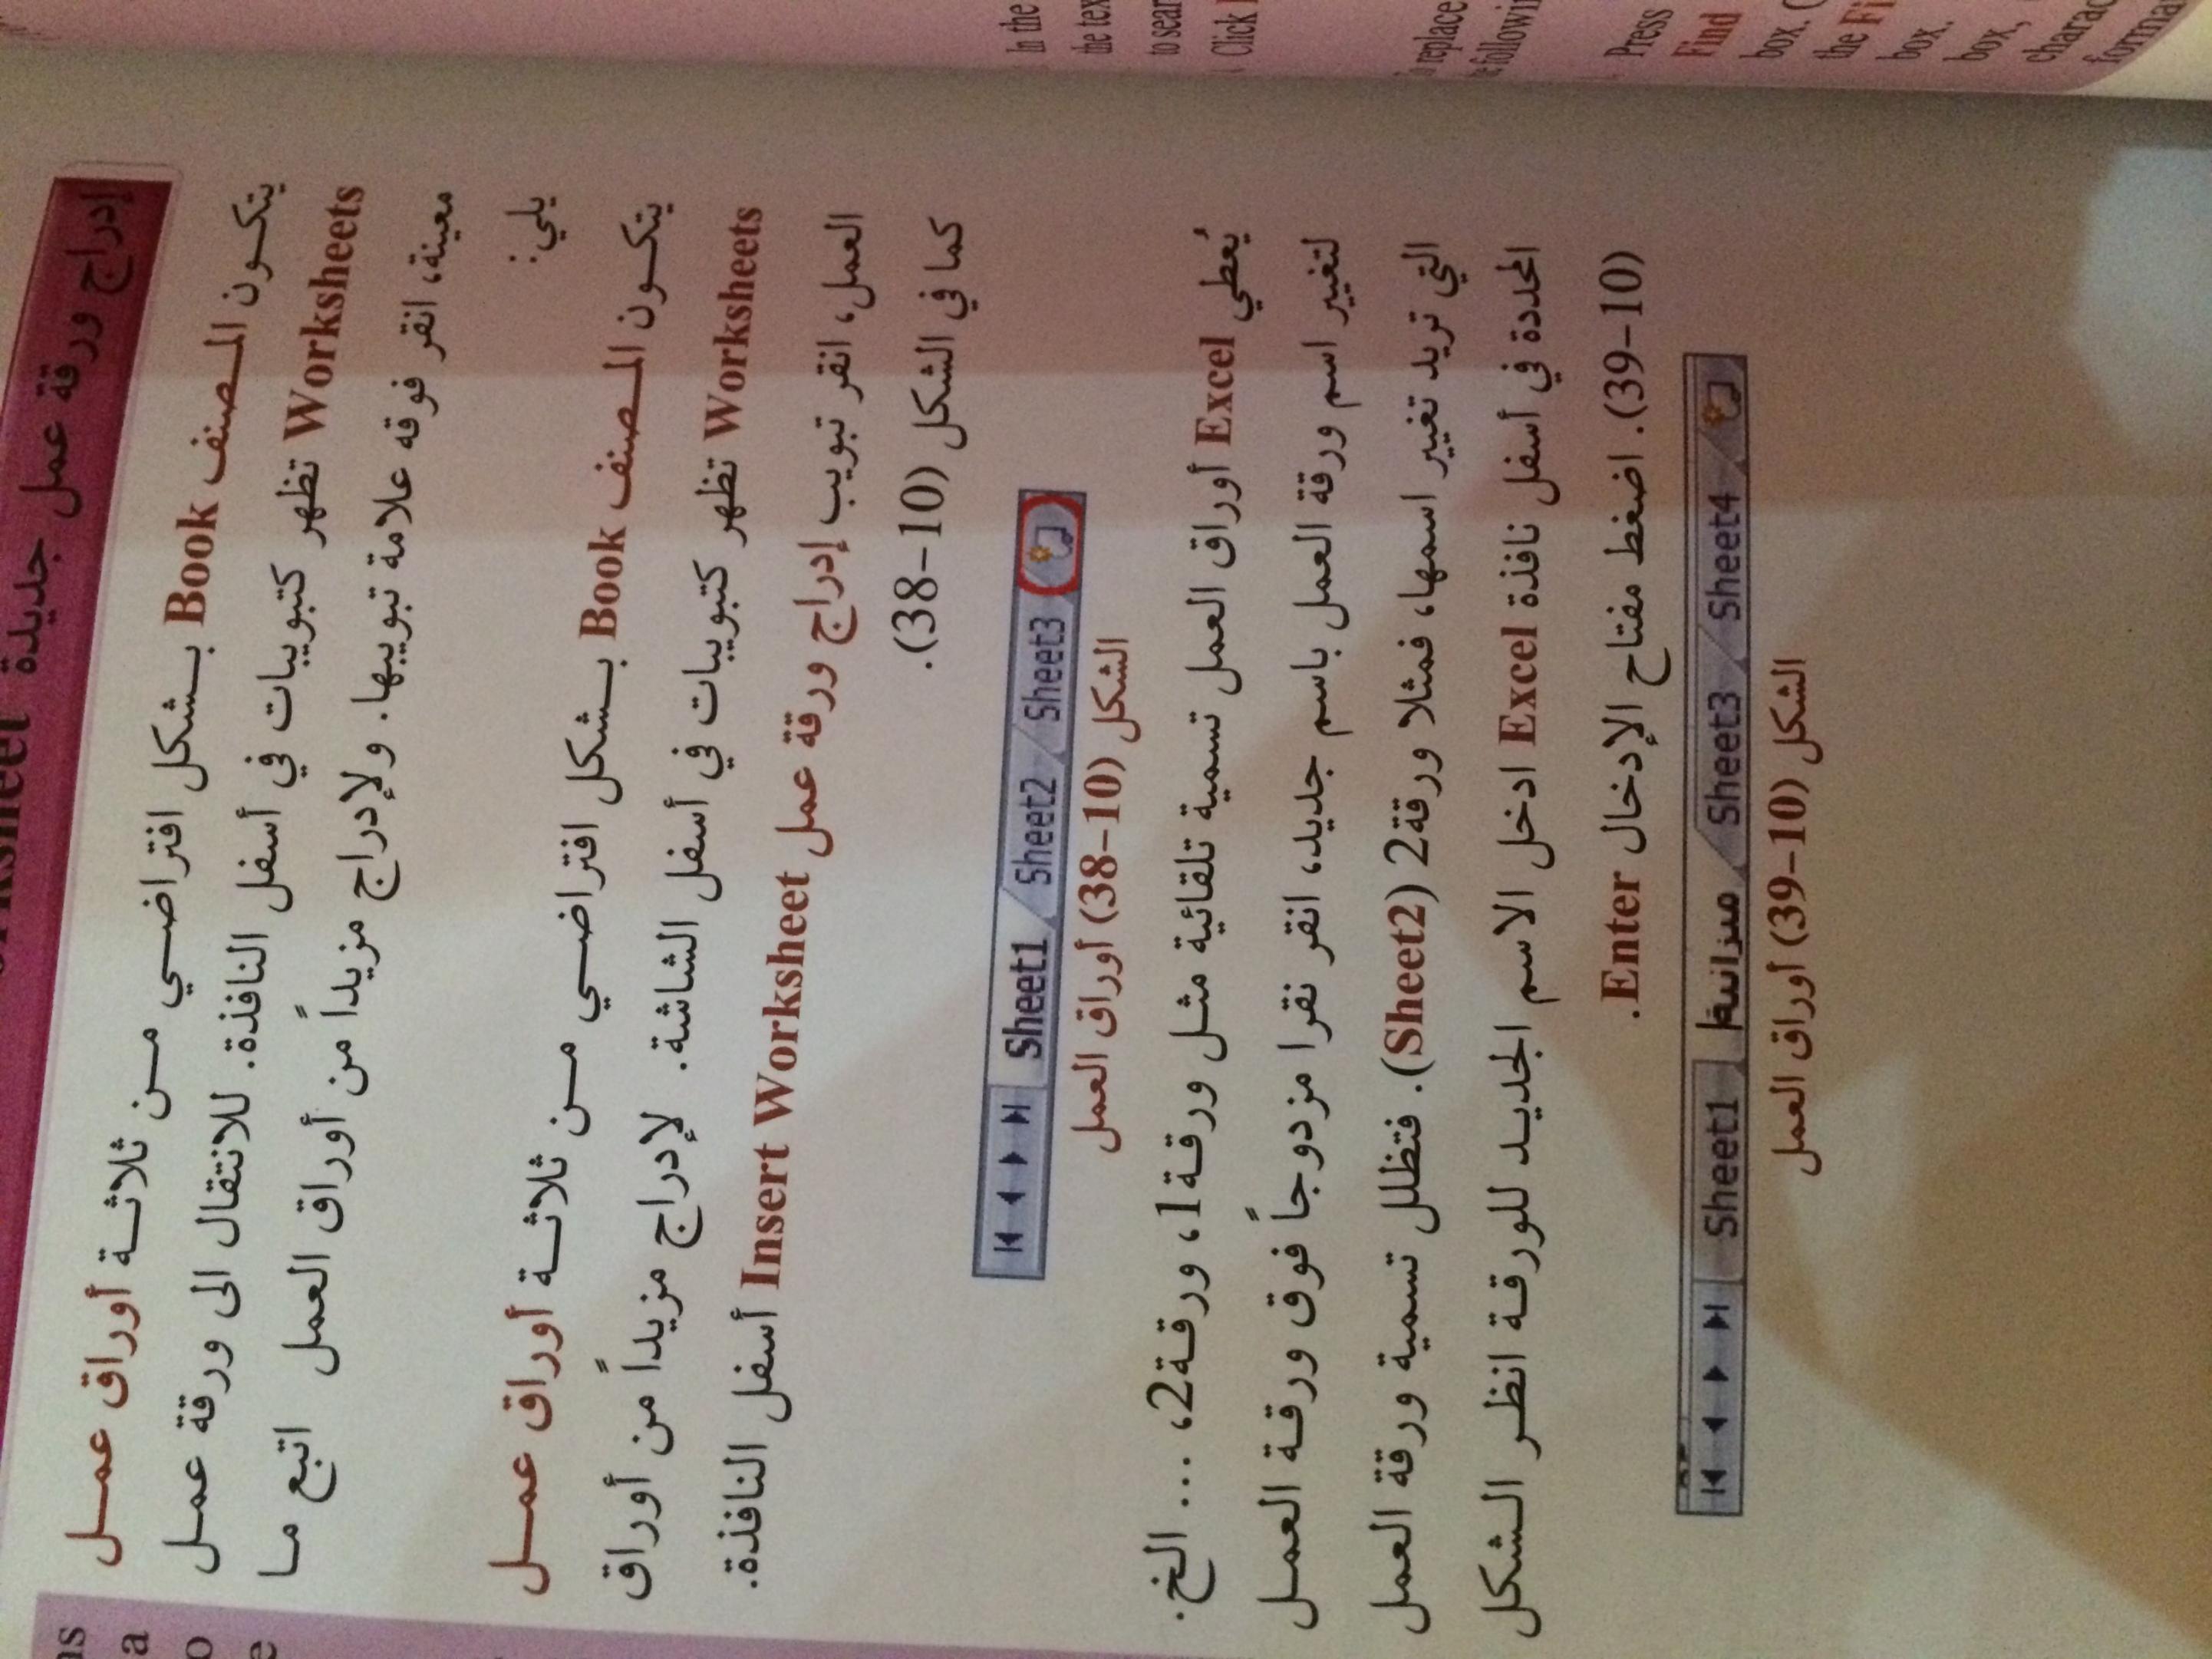 إدراج ورقة عمل جديدة
يتكون المصنف Book بشكل افتراضي من ثلاثة أوراق عمل
Worksheets تظهر كتبويبات في أسفل النافذة. للانتقال الى ورقة عمل
معينة، انقر فوقه علامة تبويبها. ولإدراج مزيداً من أوراق العمل اتبع ما
يلي:
يتكون المصنف Book بشكل افتراضي من ثلاثة أوراق عمل
Worksheets تظهر كتبويبات في أسفل الشاشة. لإدراج مزيداً من أوراق
العمل، انقر تبويب إدراج ورقة عمل Insert Worksheet أسفل النافذة.
كما في الشكل (10-38).
Sheet1 Sheet2 Sheet3
الشكل (10-38) أوراق العمل
يُعطي Excel أوراق العمل تسمية تلقائية مثل ورقة1، ورقة2، ... الخ.
لتغيير اسم ورقة العمل باسم جديد، انقر نقرا مزدوجاً فوق ورقة العمل
التي تريد تغيير اسمها، فمثلا ورقة2 (Sheet2). فتظلل تسمية ورقة العمل
المحددة في أسفل نافذة Excel ادخل الاسم الجديد للورقة انظر الشكل
(10-39). اضغط مفتاح الإدخال Enter.
Sheet1 ميزانية Sheet3 Sheet4
الشكل (10-39) أوراق العمل
In the
the tex
to sear
Click
replace
followi
Press
Find
box. (
the Fi
box.
box,
charac
forma